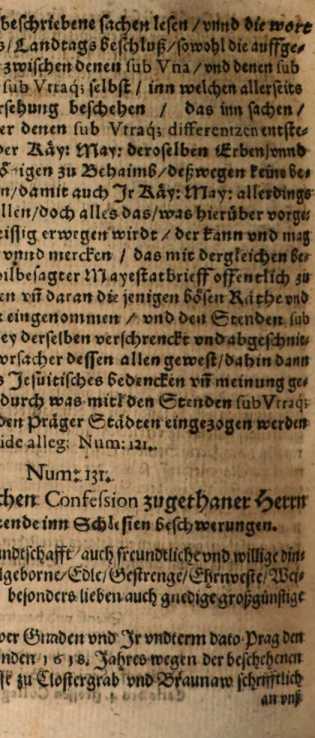 beschriebene sachen lesen / vnnd die wort
s / Landtags beschluß / sowohl die auffge-
zwischen denen sub Vna / vnd denen sub
sub Vtraq; selbst / inn welchen allerseits
rsehung beschehen / das inn sachen /
er denen sub Vtraq; differentzen entste-
der Käy: May: deroselben Erben / vnnd
igen zu Behaimb / deßwegen keins be-
n / damit auch Jr Käy: May: allerdings
llen / doch alles das / was hierüber vorge-
eissig erwegen wirdt / der kann vnd mag
vnnd mercken / das mit dergleichen be-
olbesagter Mayestatbrieff offentlich zu
en vñ daran die jenigen bösen Räthe vnd
eingenommen / vnd den Stenden sub
ey derselben verschrenckt vnd abgeschnit-
vrsacher dessen allen gewest / dahin dann
s Jesuitisches bedencken vñ meinung ge-
durch was mitl den Stenden sub Vtraq;
den Präger Städten eingezogen werden
ide alleg: Num: 121.
Num: 131.
chen Confession zugethaner Herrn
tende inn Schlesien beschwerungen.
undtschafft / auch freundtliche vnd willige din-
lgeborne / Edle / Gestrenge / Ehrnveste / Wei-
besonders lieben auch gnedige großgünstige
wer Gnaden vnd Jr vndterm dato Prag den
nden 1618. Jahres wegen der beschehenen
zu Clostergrab vnd Braunaw schrifftlich
an vnß